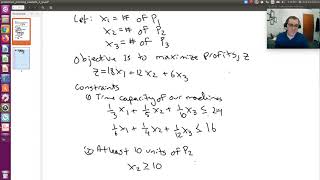 Let: x₁ = # of P₁
x₂ = # of P₂
x₃ = # of P₃
Objective is to maximize profits, z
z = 18x₁ + 12x₂ + 6x₃
Constraints
① Time capacity of our machines
1/3 x₁ + 1/5 x₂ + 1/10 x₃ ≤ 24
1/6 x₁ + 1/4 x₂ + 1/12 x₃ ≤ 16
② At least 10 units of P₂
x₂ ≥ 10